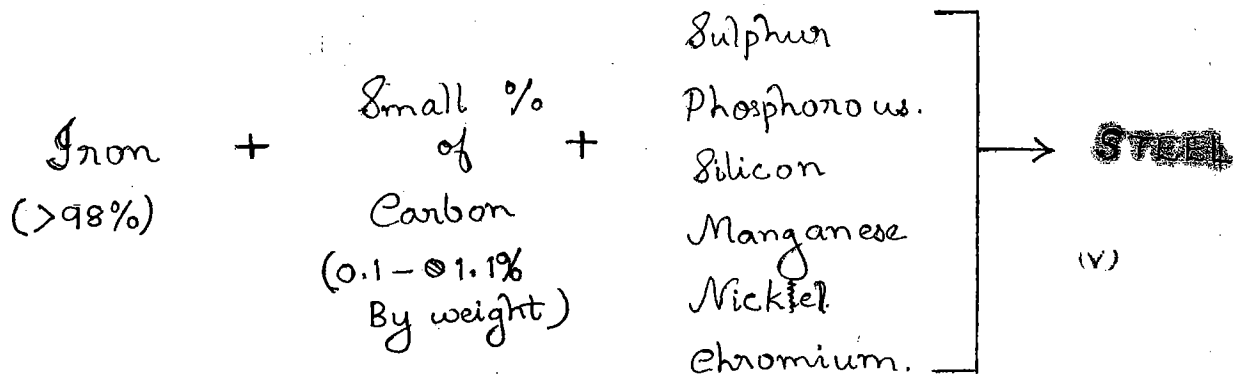 Iron
(>98%)
+
Small %
of
Carbon
(0.1 - 1.1%
By weight)
+
Sulphur
Phosphorous.
Silicon
Manganese
Nickel
Chromium.
STEEL
(v)